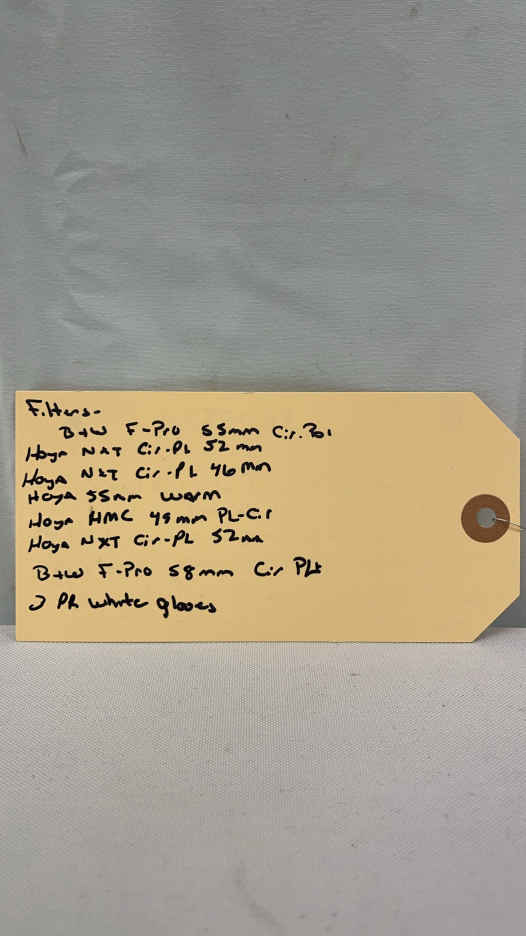 Filters-
B+W F-Pro 55mm Cir. Pol
Hoya NXT Cir-PL 52mm
Hoya NXT Cir-PL 46mm
Hoya 55mm warm
Hoya HMC 49mm PL-Cir
Hoya NXT Cir-PL 52mm
B+W F-Pro 58mm Cir
2 PR white gloves